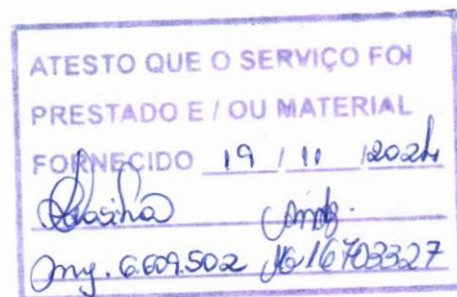 ATESTO QUE O SERVIÇO FOI
PRESTADO E / OU MATERIAL
FORNECIDO 19 / 11 / 2024
6.609.502 16703327